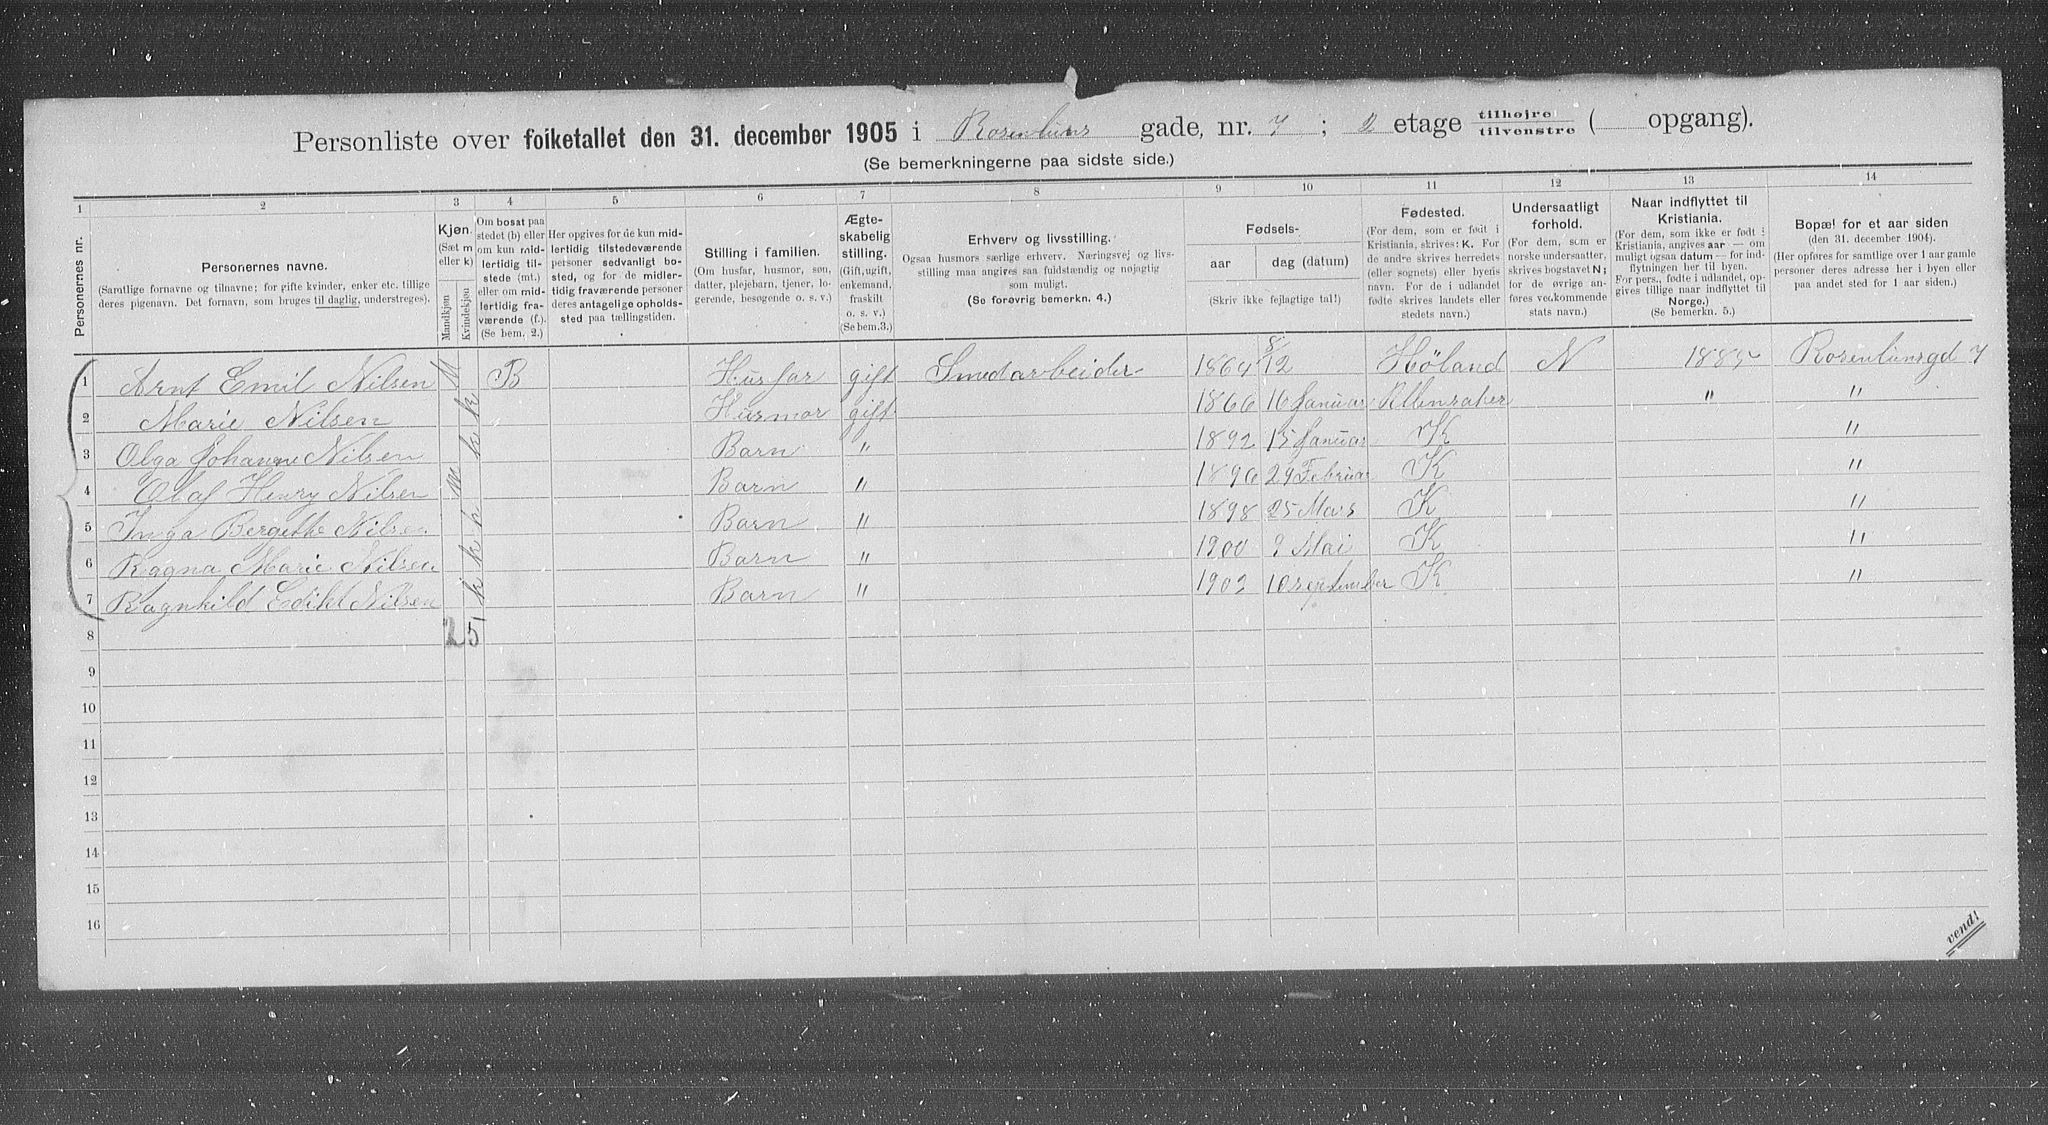 Personliste over folketallet den 31. december 1905 i Rosenlunds gade, nr. 7 ; 2 etage tilhøjre tilvenstre ( opgang).
(Se bemerkningerne paa sidste side.)
1 2 3 4 5 6 7 8 9 10 11 12 13 14
Personernes nr.
Personernes navne.
(Samtlige fornavne og tilnavne; for gifte kvinder, enker etc. tillige deres pigenavn. Det fornavn, som bruges til daglig, understreges).
Kjøn.
(Sæt m eller k)
Mandkjøn
Kvindekjøn
Om bosat paa stedet (b) eller om kun midlertidig tilstede (mt.) eller om midlertidig fraværende (f.). (Se bem. 2.)
Her opgives for de kun midlertidig tilstedeværende personer sedvanligt bosted, og for de midlertidig fraværende personer deres antagelige opholdssted paa tællingstiden.
Stilling i familien.
(Om husfar, husmor, søn, datter, plejebarn, tjener, logerende, besøgende o. s. v.)
Ægteskabelig stilling.
(Gift, ugift, enkemand, fraskilt o. s. v.)
(Se bem. 3.)
Erhverv og livsstilling.
Ogsaa husmors særlige erhverv. Næringsvej og livsstilling maa angives saa fuldstændig og nøjagtig som muligt.
(Se forøvrig bemerkn. 4.)
Fødsels-
aar dag (datum)
(Skriv ikke fejlagtige tal!)
Fødested.
(For dem, som er født i Kristiania, skrives: K. For de andre skrives herredets (eller sognets) eller byens navn. For de i udlandet fødte skrives landets eller stedets navn.)
Undersaatligt forhold.
(For dem, som er norske undersaatter, skrives bogstavet N; for de øvrige anføres vedkommende stats navn.)
Naar indflyttet til Kristiania.
(For dem, som ikke er født i Kristiania, angives aar — om muligt ogsaa datum — for indflytningen her til byen. For pers., fødte i udlandet, opgives tillige naar indflyttet til Norge.)
(Se bemerkn. 5.)
Bopæl for et aar siden
(den 31. december 1904).
(Her opføres for samtlige over 1 aar gamle personer deres adresse her i byen eller paa andet sted for 1 aar siden.)
1 Arnt Emil Nilsen M B Husfar gift Smedarbeider 1864 8/12 Høland N Rosenlunsgd 7
2 Marie Nilsen k Husmor gift 1866 16 Januar " "
3 Olga Johanne Nilsen k Barn " 1892 15 Januar K "
4 Olaf Henry Nilsen m Barn " 1896 29 Februar K "
5 Inga Bergitte Nilsen k Barn " 1898 25 Mars K "
6 Ragna Marie Nilsen k Barn " 1900 9 Mai K "
7 Ragnhild Ediht Nilsen k Barn " 1902 10 september K "
8 2 5
9
10
11
12
13
14
15
16
vend!